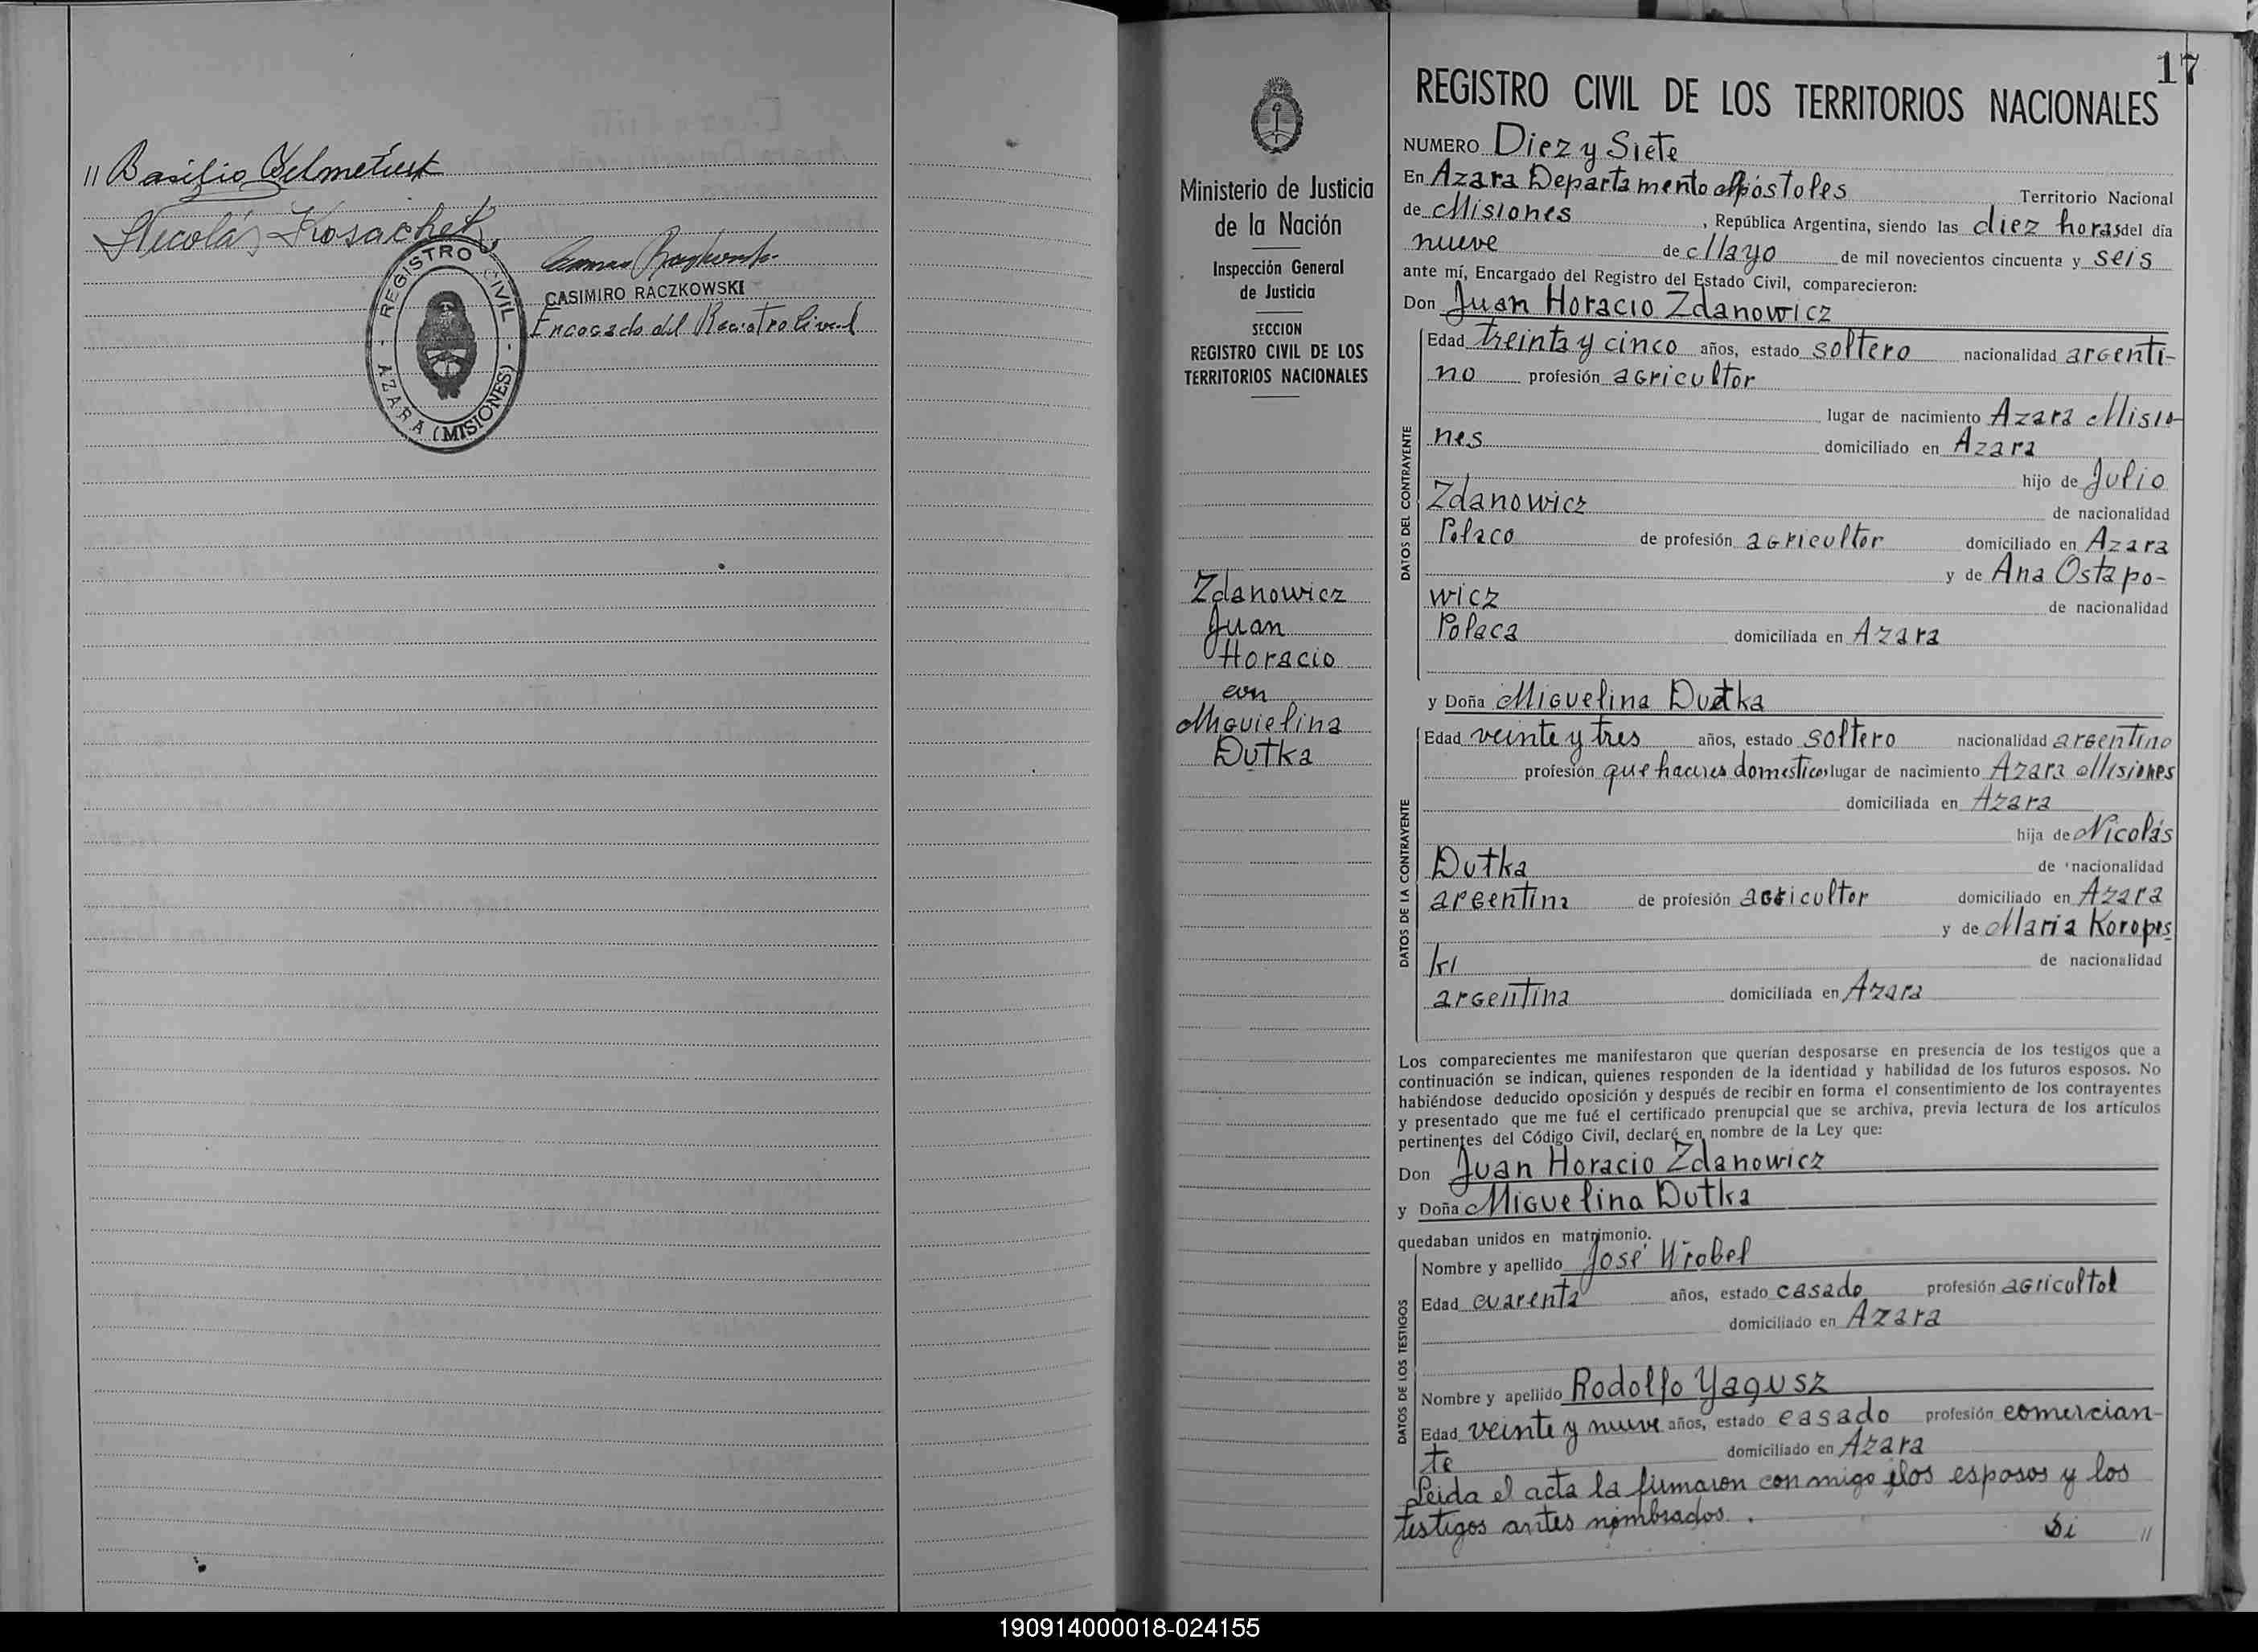 " Basilio
Nicolás Kosachek
REGISTRO CIVIL - AZARA (MISIONES) -
CASIMIRO RACZKOWSKI
Encargado del Registro Civil
17
Ministerio de Justicia
de la Nación
Inspección General
de Justicia
SECCION
REGISTRO CIVIL DE LOS
TERRITORIOS NACIONALES
Zdanowicz
Juan
Horacio
con
Miguielina
Dutka
REGISTRO CIVIL DE LOS TERRITORIOS NACIONALES
NUMERO Diez y Siete
En Azara Departamento Apóstoles Territorio Nacional
de Misiones, República Argentina, siendo las diez horas del día
nueve de Mayo de mil novecientos cincuenta y seis
ante mí, Encargado del Registro del Estado Civil, comparecieron:
Don Juan Horacio Zdanowicz
DATOS DEL CONTRAYENTE
Edad treinta y cinco años, estado soltero nacionalidad argenti-
no profesión agricultor
lugar de nacimiento Azara Misio-
nes domiciliado en Azara
hijo de Julio
Zdanowicz de nacionalidad
Polaco de profesión agricultor domiciliado en Azara
y de Ana Ostapo-
wicz de nacionalidad
Polaca domiciliada en Azara
y Doña Miguelina Dutka
DATOS DE LA CONTRAYENTE
Edad veinte y tres años, estado soltero nacionalidad argentino
profesión que haceres domesticos lugar de nacimiento Azara Misiones
domiciliada en Azara
hija de Nicolás
Dutka de nacionalidad
argentina de profesión agricultor domiciliado en Azara
y de Maria Koropes
ki de nacionalidad
argentina domiciliada en Azara
Los comparecientes me manifestaron que querían desposarse en presencia de los testigos que a
continuación se indican, quienes responden de la identidad y habilidad de los futuros esposos. No
habiéndose deducido oposición y después de recibir en forma el consentimiento de los contrayentes
y presentado que me fué el certificado prenupcial que se archiva, previa lectura de los artículos
pertinentes del Código Civil, declaré en nombre de la Ley que:
Don Juan Horacio Zdanowicz
y Doña Miguelina Dutka
quedaban unidos en matrimonio.
DATOS DE LOS TESTIGOS
Nombre y apellido José Wrobel
Edad cuarenta años, estado casado profesión agricultol
domiciliado en Azara
Nombre y apellido Rodolfo Yagusz
Edad veinte y nueve años, estado casado profesión comercian-
te domiciliado en Azara
Leida el acta la firmaron conmigo los esposos y los
testigos antes nombrados. Si "
190914000018-024155